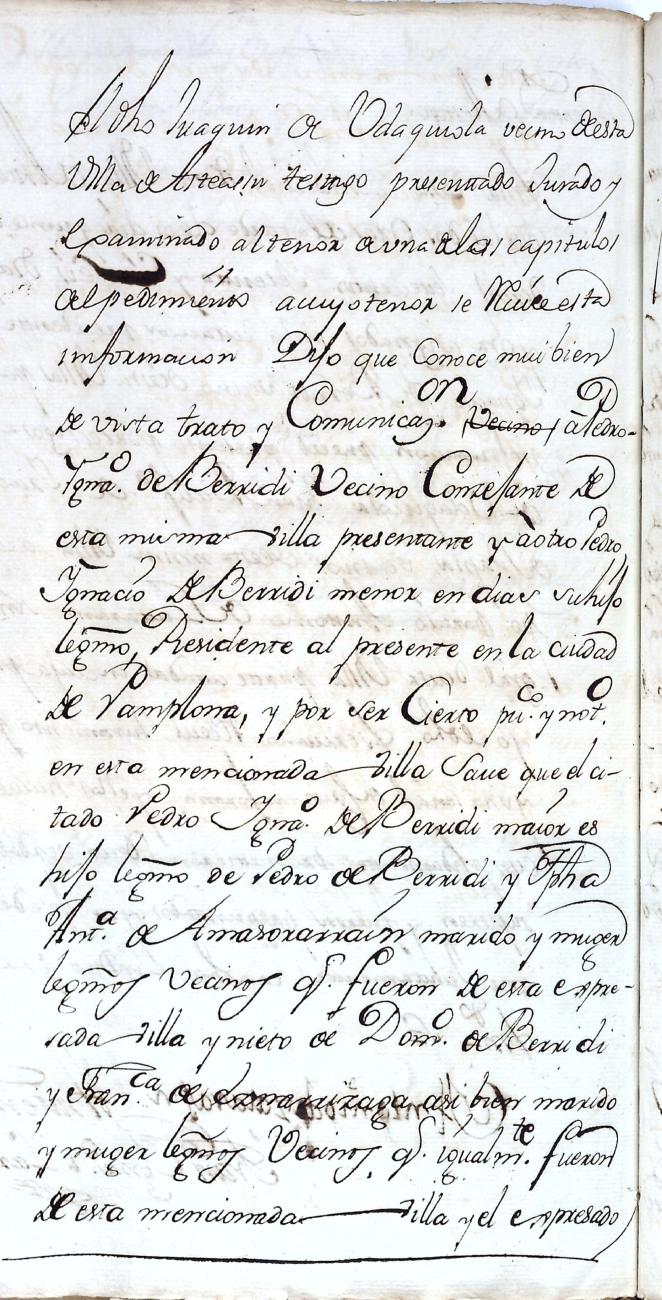 El dho Juaquin de Vdaquiola vecino de esta
Villa de Asteasu testigo presentado Jurado y
Examinado al tenor de vna de los capitulos
del pedimiento a cuyo tenor se Reciue esta
informacion Dijo que Conoce mui bien
de vista trato y Comunicaz.on Vecino a Pedro-
Igna.o de Berridi Vecino Conzejante de
esta misma villa presentante y à otro Pedro
Ignacio de Berridi menor en dias su hijo
legmo, Residente al presente en la ciudad
de Pamplona, y por ser Cierto pu.co y not.o
en esta mencionada villa Saue que el ci-
tado Pedro Igna.o de Berridi maior es
hijo legmo de Pedro de Berridi y
Ant.a de Amasorarrain marido y muger
legmos Vecinos q.e fueron de esta expre-
sada villa y nieto de Dom.o de Berridi
y Fran.ca de asi bien marido
y muger legmos Vecinos q.e igualm.te fueron
de esta mencionada villa y el expresado